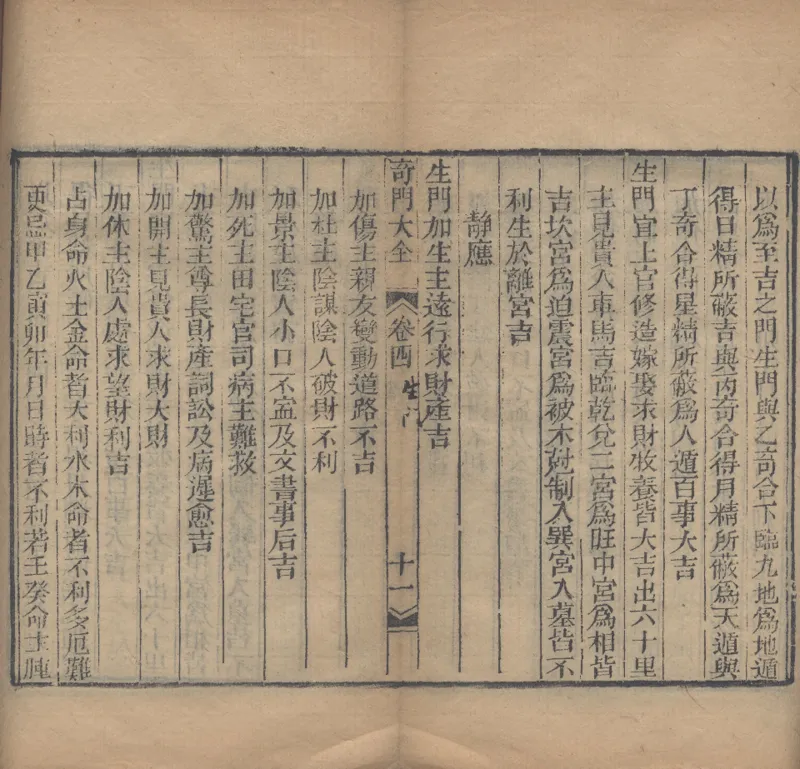 以爲至吉之門生門與乙奇合下臨九地爲地遁
得日精所蔽吉與丙奇合得月精所蔽爲天遁與
丁奇合得星精所蔽爲人遁百事大吉
生門宜上官修造嫁娶求財牧養皆大吉出六十里
主見貴人車馬吉臨乾兌二宮爲旺中宮爲相皆
吉坎宮爲迫震宮爲被木尅制入巽宮入墓皆不
利生於離宮吉
靜應
生門加生主遠行求財產吉
奇門大全 卷四 生門 十一
加傷主親友變動道路不吉
加杜主陰謀陰人破財不利
加景主陰人小口不寍及文書事后吉
加死主田宅官司病主難救
加驚主尊長財產詞訟及病遲愈吉
加開主見貴人求財大財
加休主陰人處求望財利吉
占身命火土金命者大利水木命者不利多厄難
更忌甲乙寅卯年月日時者不利若壬癸命主腫